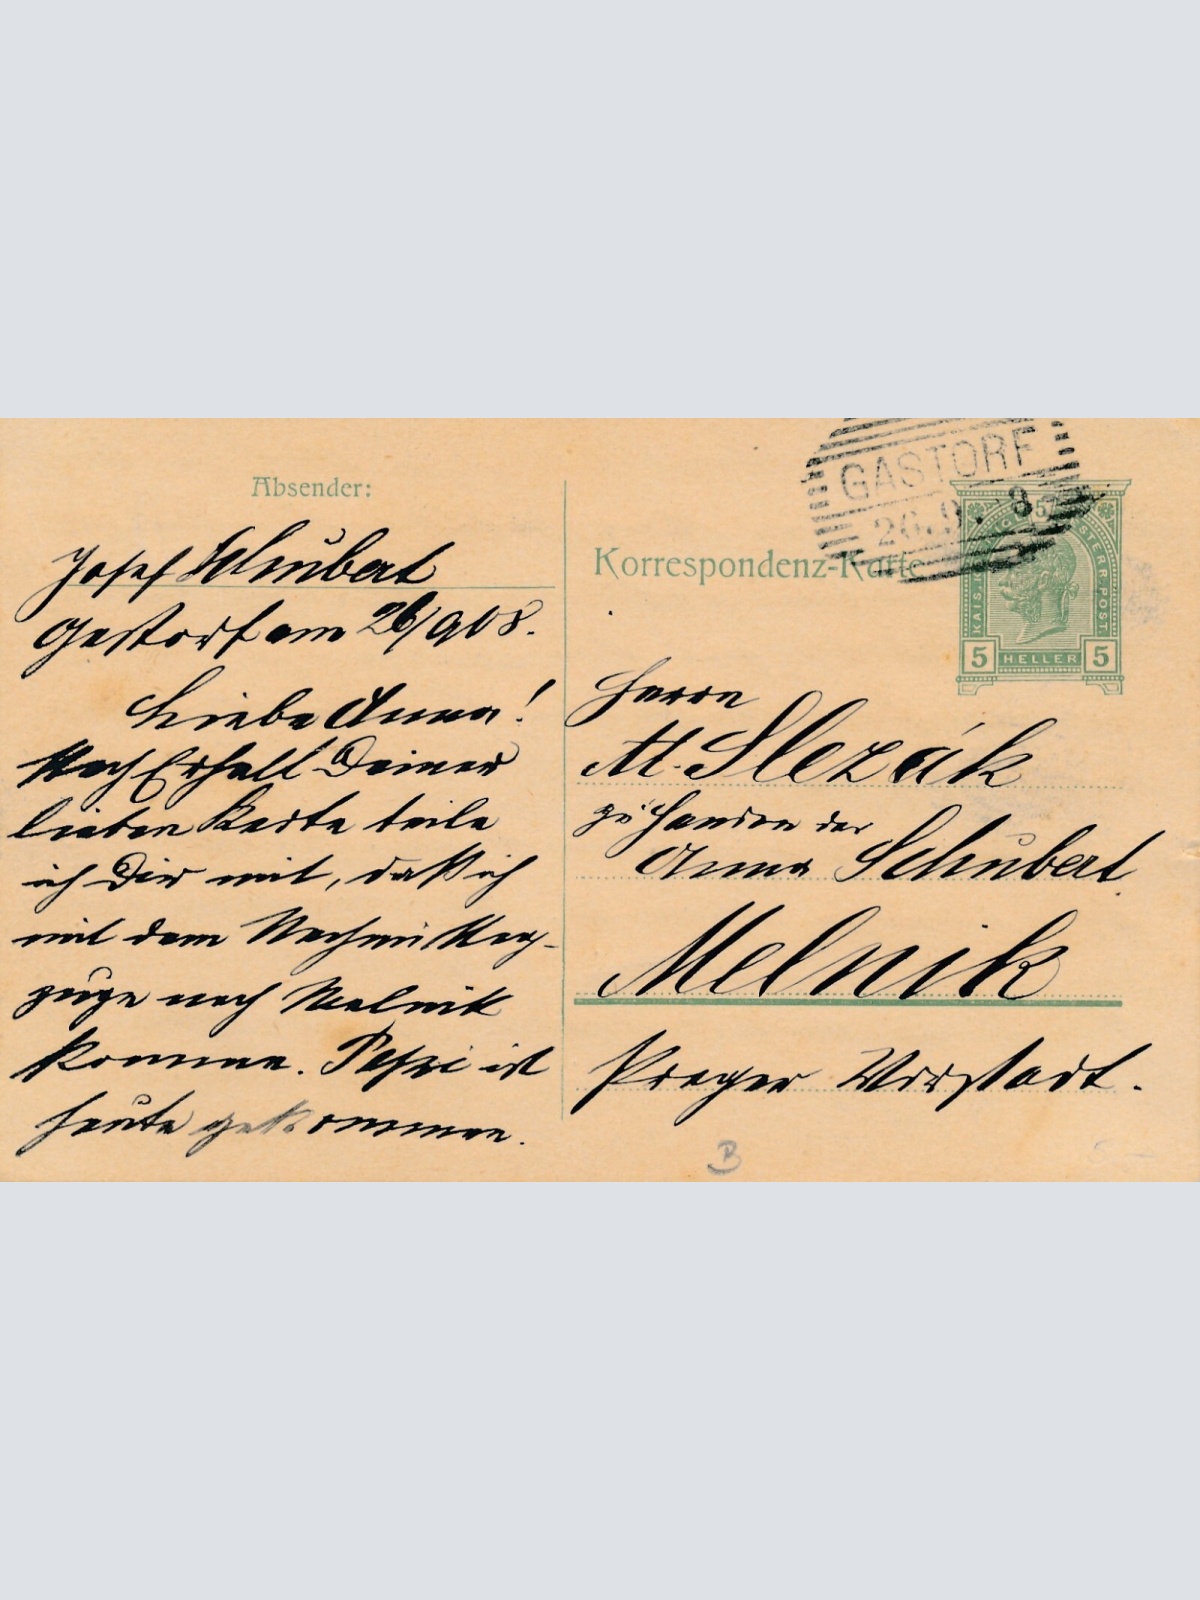 Absender:
Josef Schubert
Gastorf am 26/908.
Liebe Anna!
Nach Erhalt Deiner
lieben Karte teile
ich Dir mit, daß ich
mit dem Nachmittag-
zuge nach Melnik
komme. Pepi ist
heute gekommen.
GASTORF
26.9. 8
Korrespondenz-Karte
KAIS. KÖNIGL. ÖSTERR. POST
5 HELLER 5
Herrn
A. Slezák
zu Handen der
Anna Schubert
Melnik
Prager Vorstadt.
B